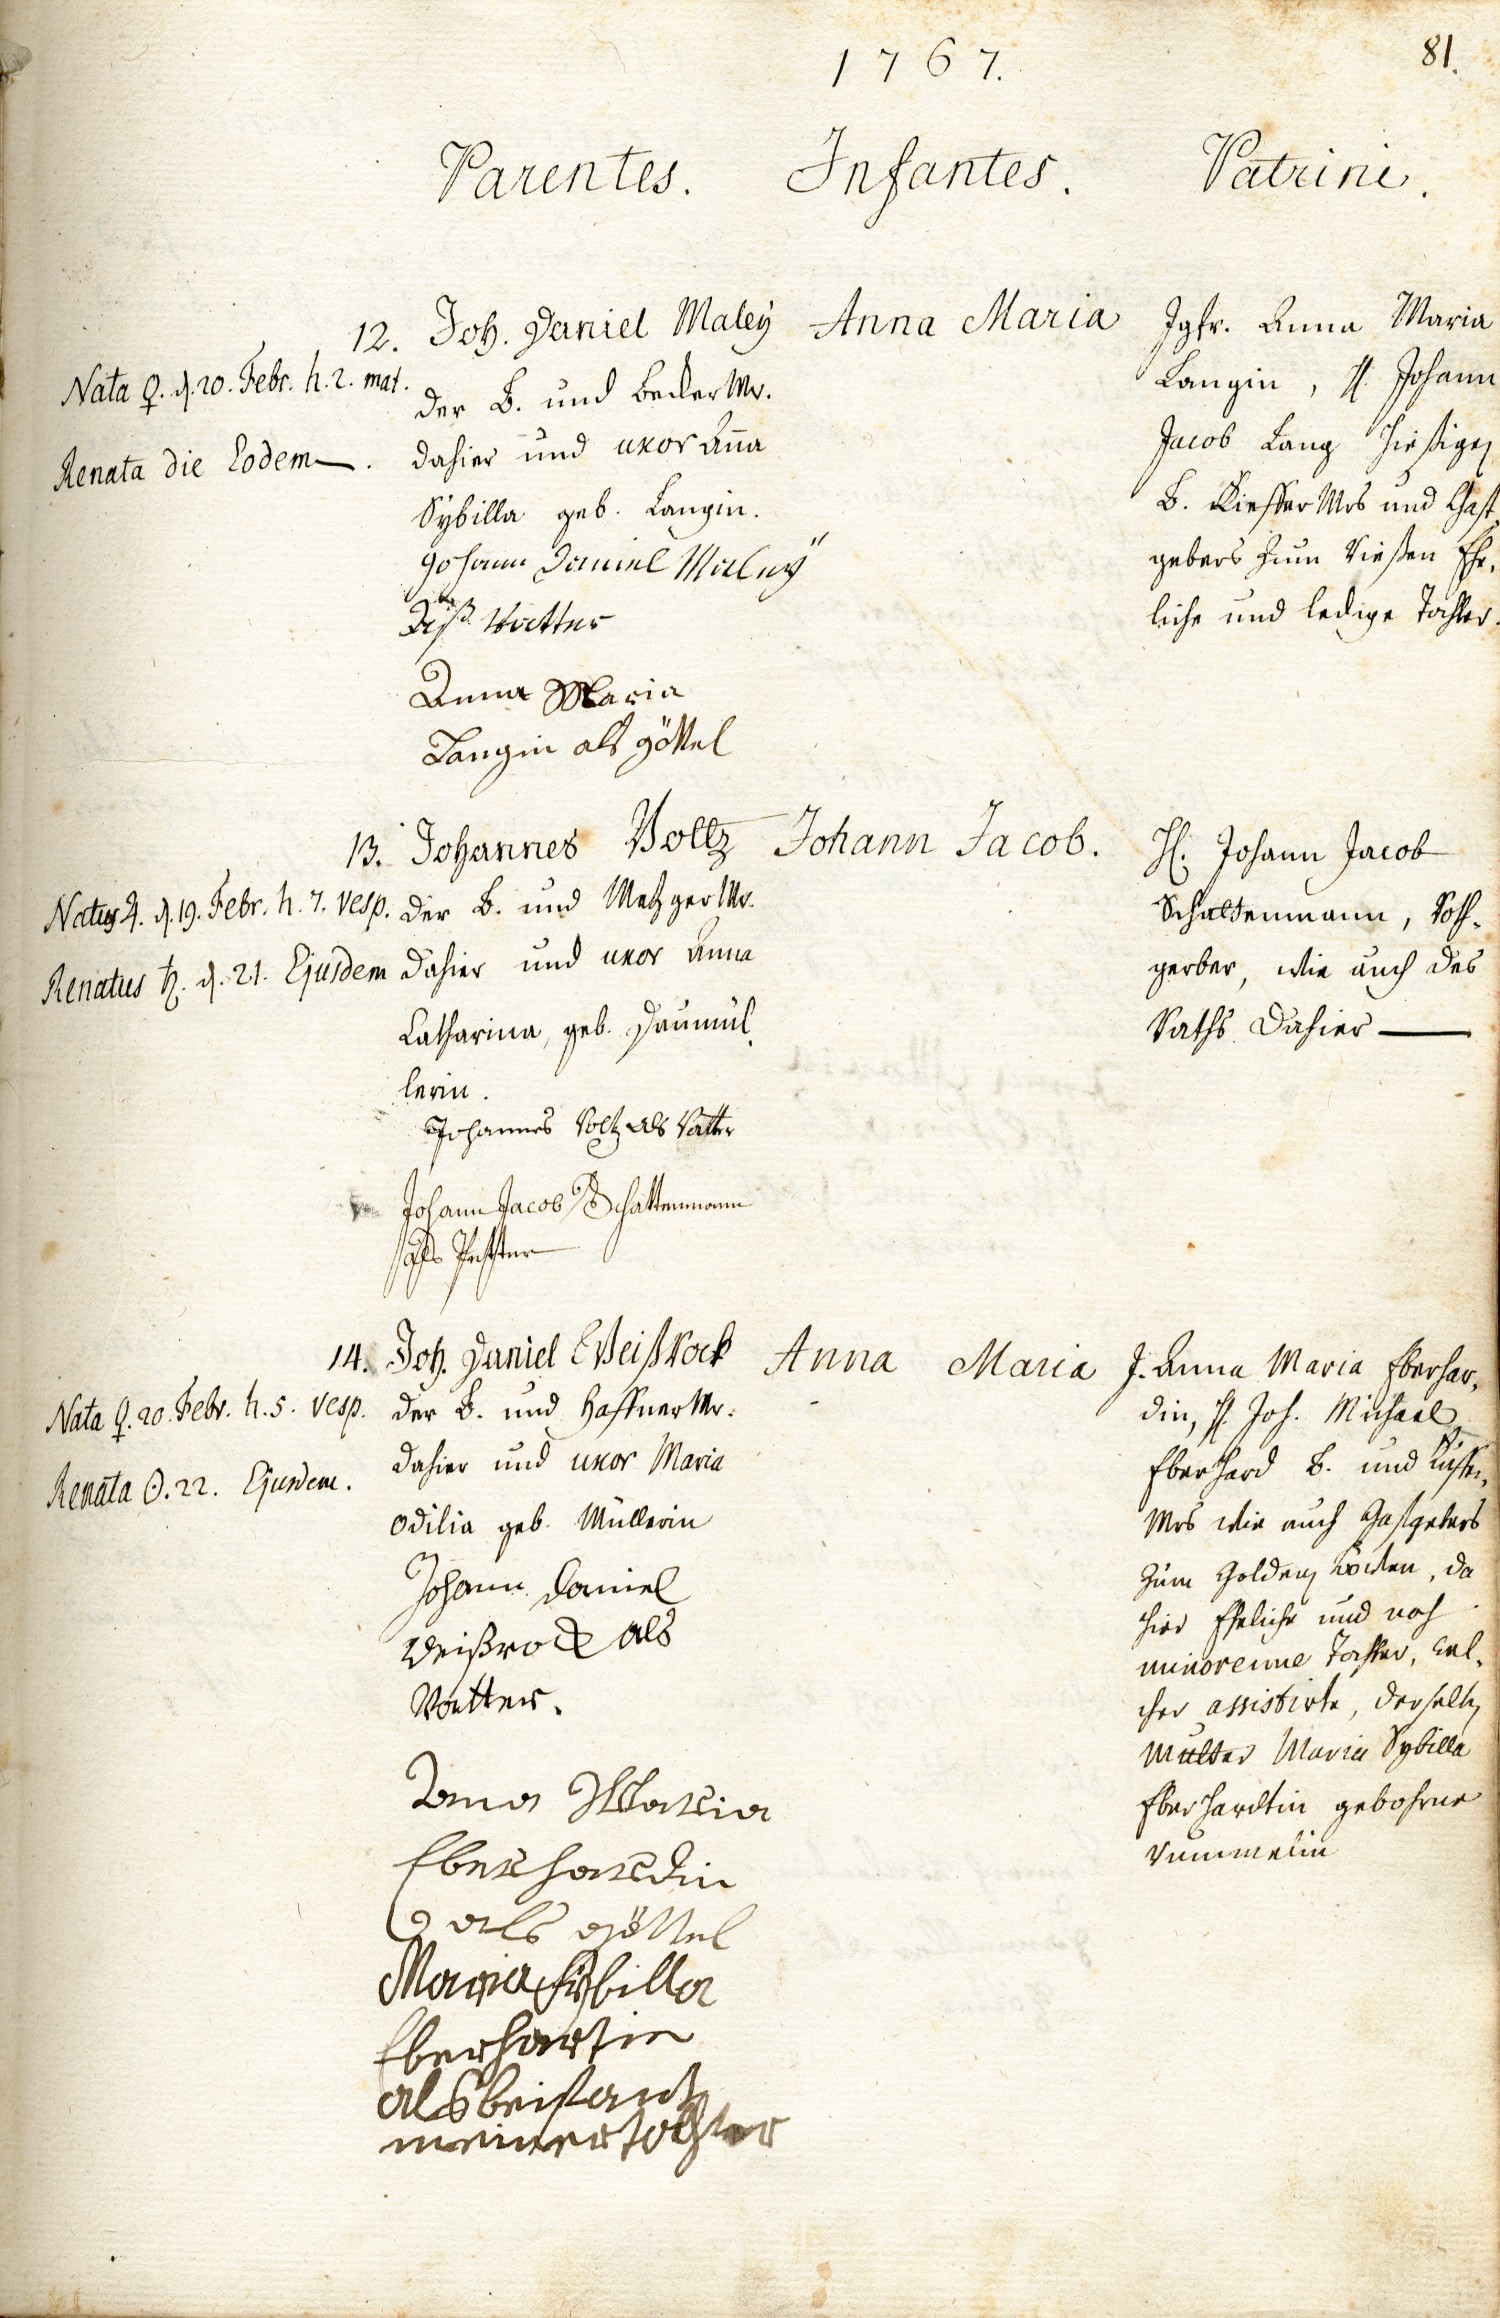 1767.
81.
Parentes. Infantes. Patrini.
12. Joh. Daniel Maleÿ
der B. und Becker Mr.
dahier und uxor Aña
Sÿbilla geb. Langin.
Johann Daniel Maleÿ
Vatter
Anna Maria
Langin als göttel
Nata ♀. d. 20. Febr. h. 2. mat.
Renata die Eodem.
Anna Maria
Jgfr. Anna Maria
Langin, H. Johann
Jacob Lang hießigen
B. Kieffer Mrs und Gast-
gebers zum Rießen Ehe-
liche und ledige Tochter.
13. Johannes Voltz
der B. und Metzger Mr.
dahier und uxor Anna
Catharina, geb. Daumül-
lerin.
Johannes Voltz als Vatter
Johann Jacob Schattenmann
als Pfetter
Natus ♃. d. 19. Febr. h. 7. vesp.
Renatus ♄. d. 21. Ejusdem
Johann Jacob.
H. Johann Jacob
Schattenmann, Roth-
gerber, wie auch des
Raths dahier
14. Joh. Daniel Weißrock
der B. und Haffner Mr.
dahier und uxor Maria
Odilia geb. Müllerin
Johann Daniel
Weißrock als
Vatter.
Anna Maria
Eberhardin
als göttel
Maria Sÿbilla
Eberhartin
als beistant
meiner tochter
Nata ♀. 20. Febr. h. 5. vesp.
Renata ☉. 22. Ejusdem.
Anna Maria
J. Anna Maria Eberhar-
din, H. Joh. Michael
Eberhard B. und Kieffer-
Mrs wie auch Gastgebers
zum Golden, da
hier Eheliche und noch
minorenne Tochter, wel-
cher assistirte, derselben
Mutter Maria Sybilla
Eberhardtin gebohrne
Rummelin